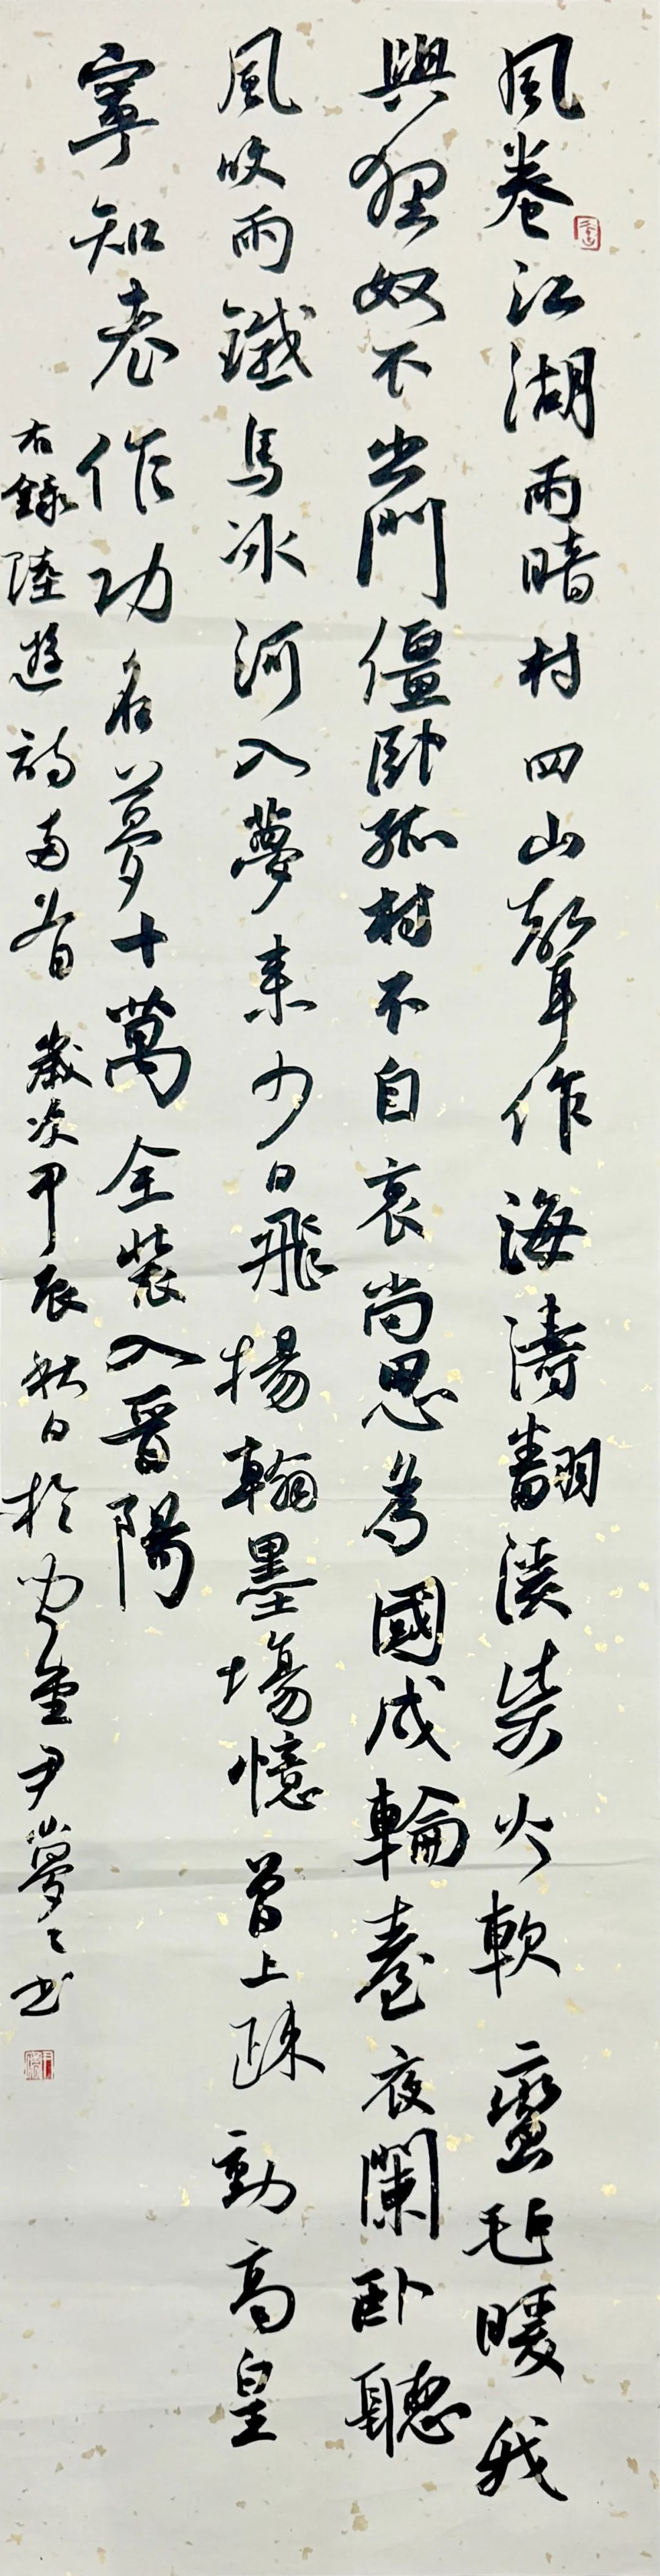 風卷江湖雨暗村四山聲作海濤翻溪柴火軟蠻氈暖我
與狸奴不出門僵卧孤村不自哀尚思為國戍輪臺夜闌卧聽
風吹雨鐵馬冰河入夢來少日飛揚翰墨場憶曾上疏動高皇
寧知老作功名夢十萬全裝入晉陽
右錄陸遊詩三首歲次甲辰秋日於尹夢々書